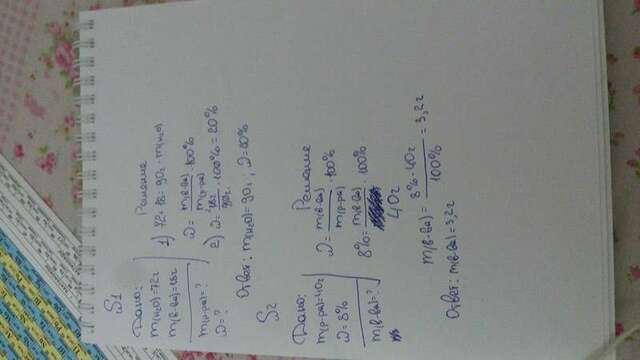 S1
Дано:
m(н2о)=72г
m(в-ва)=18г
m(р-ра)=?
ω=?
Решение
1) 72+18=90г - m(н2о)
ω= m(в-ва) / m(р-ра) · 100%
2) ω= 18г / 90г · 100% = 20%
Ответ: m(н2о)=90г ; ω=20%
S2
Дано:
m(р-ра)=40г
ω=8%
m(в-ва)=?
Решение
ω= m(в-ва) / m(р-ра) · 100%
8%= m(в-ва) / 40г · 100%
m(в-ва)= 8% · 40г / 100% = 3,2г
Ответ: m(в-ва)=3,2г